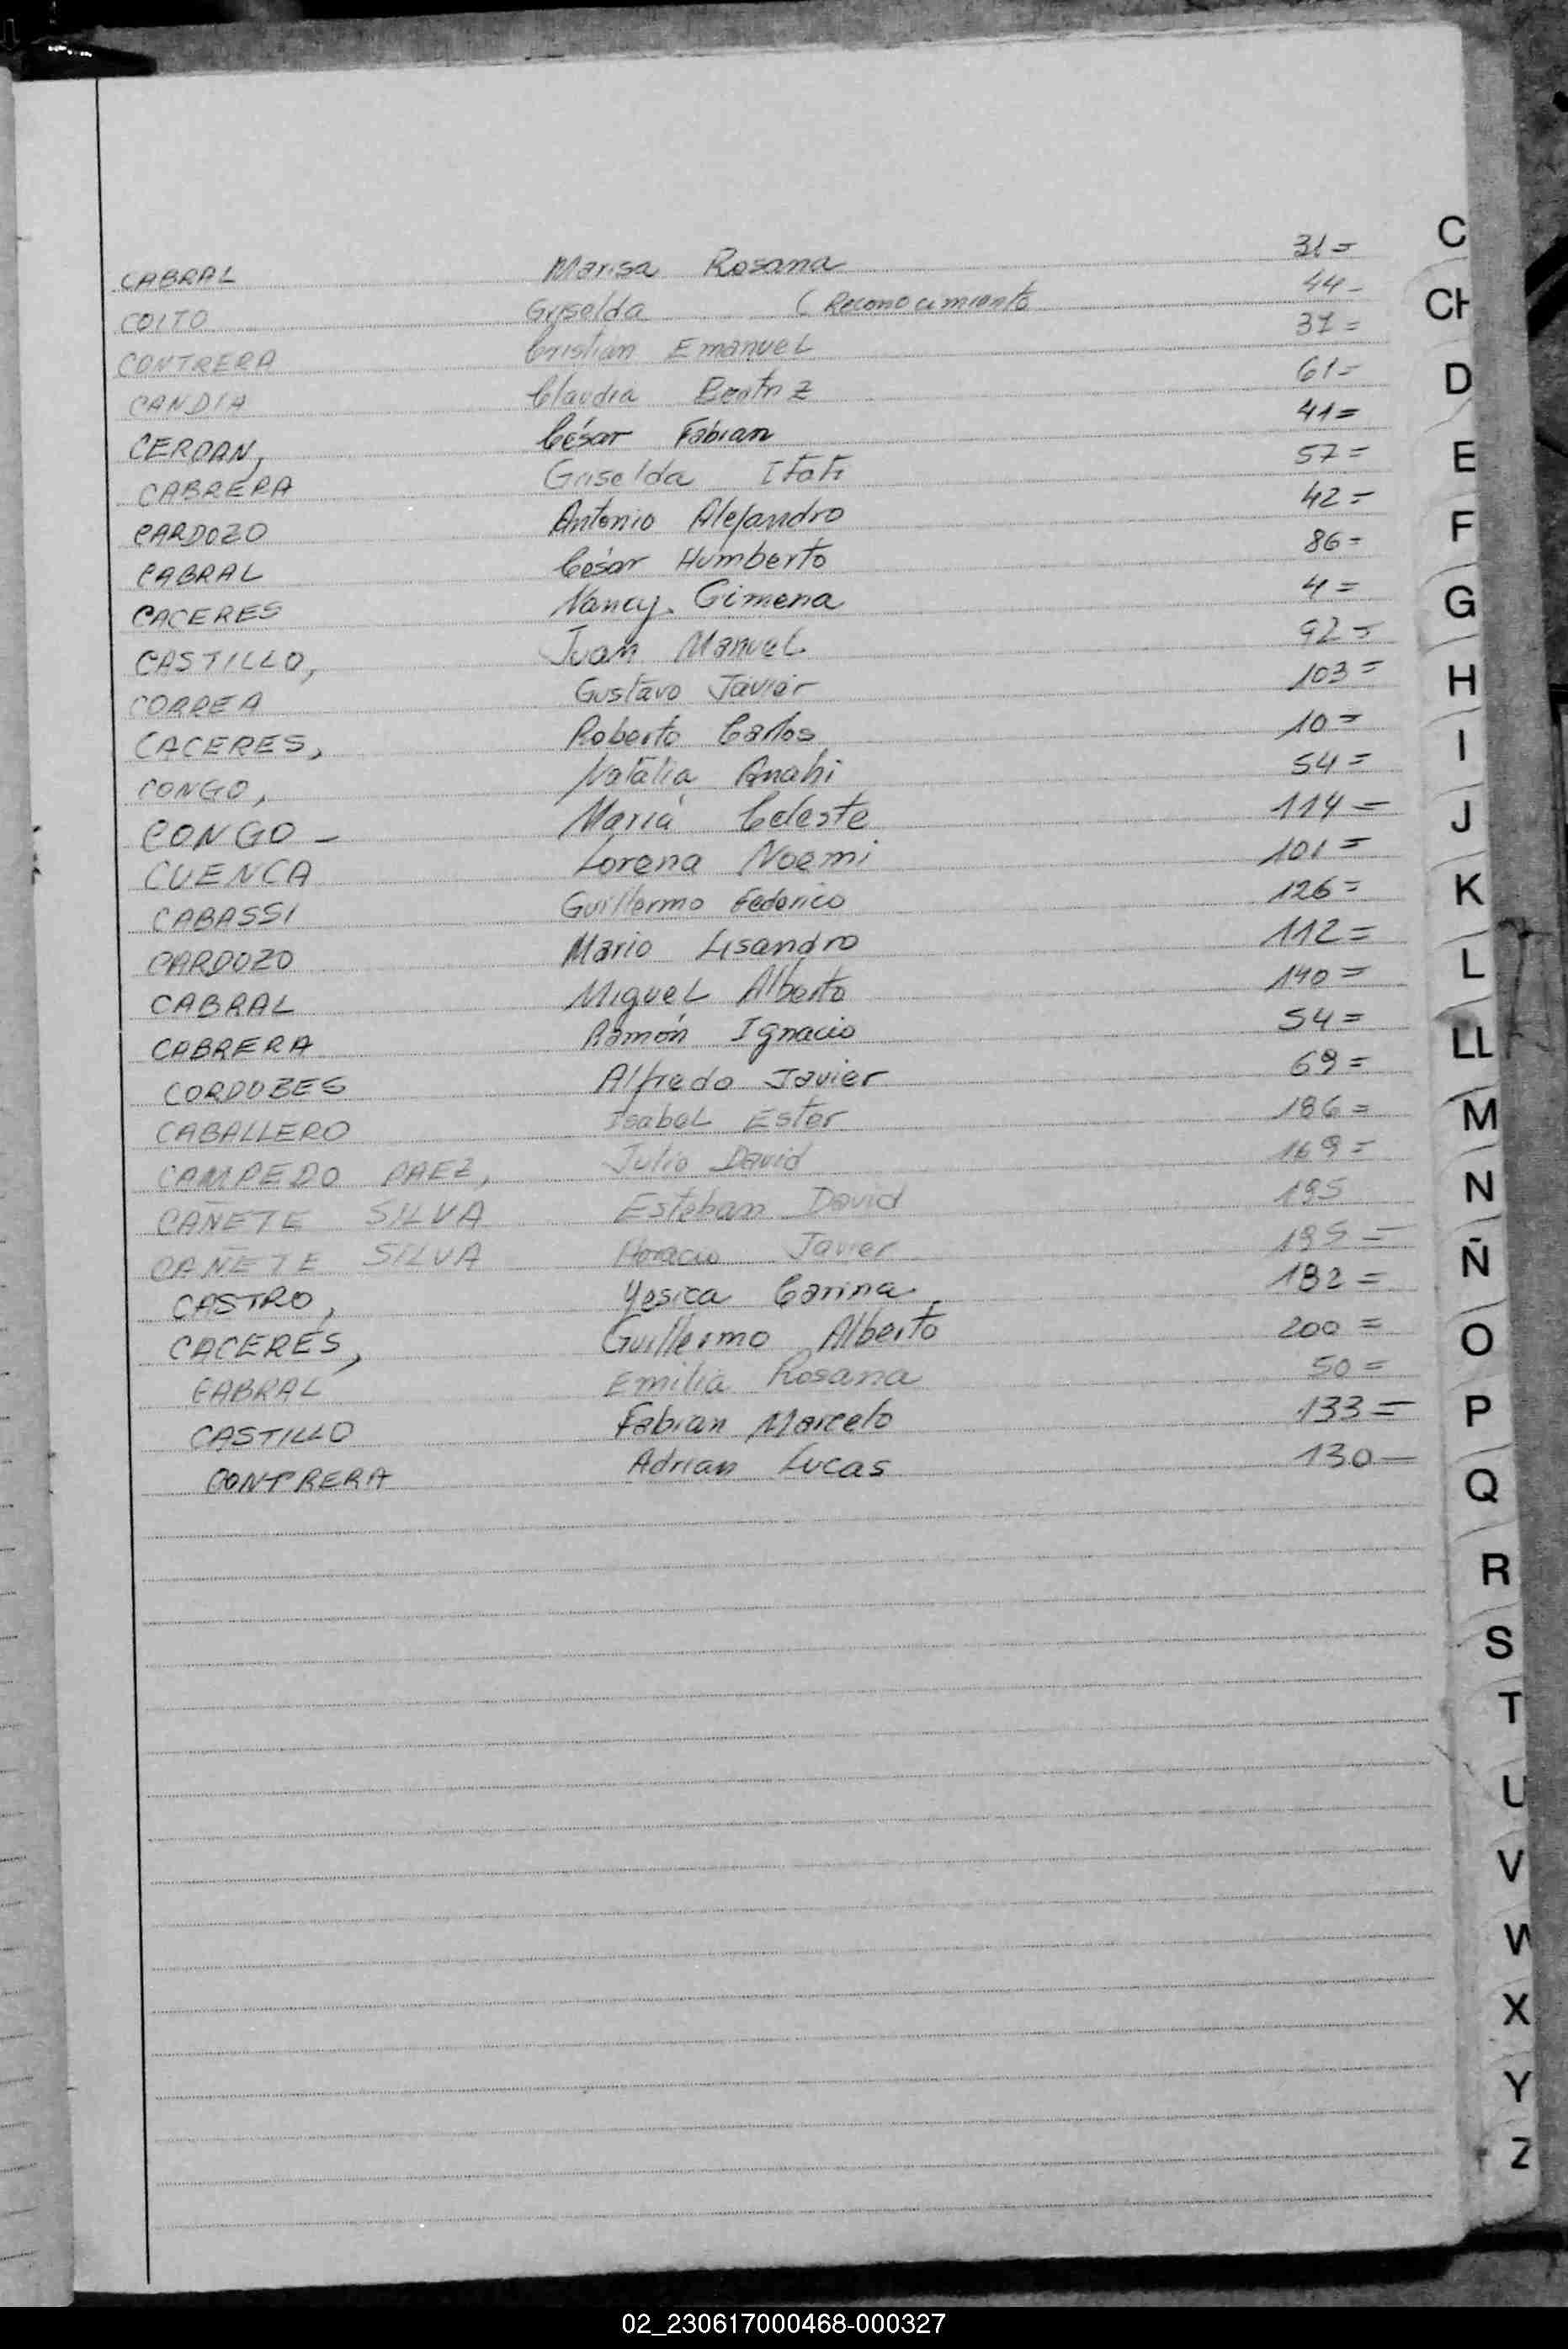 CABRAL Marisa Rosana 31=
COITO Griselda (Reconocimiento 44-
CONTRERA Cristian Emanuel 37=
CANDIA Claudia Beatriz 61=
CERDAN, César Fabian 41=
CABRERA Griselda Itati 57=
CARDOZO Antonio Alejandro 42=
CABRAL César Humberto 86=
CACERES Nancy. Gimena 4=
CASTILLO, Juan Manuel 92=
CORREA Gustavo Javier 103=
CACERES, Roberto Carlos 10=
CONGO, Natalia Anahi 54=
CONGO - Maria Celeste 114=
CUENCA Lorena Noemi 101=
CABASSI Guillermo Federico 126=
CARDOZO Mario Lisandro 112=
CABRAL Miguel Alberto 140=
CABRERA Ramón Ignacio 54=
CORDOBES Alfredo Javier 69=
CABALLERO Isabel Ester 186=
CAMPEDO PAEZ, Julio David 169=
CAÑETE SILVA Esteban David 195
CAÑETE SILVA Horacio Javier 195=
CASTRO, Yesica Carina 182=
CACERES, Guillermo Alberto 200=
CABRAL Emilia Rosana 50=
CASTILLO Fabian Marcelo 133=
CONTRERA Adrian Lucas 130=
C
CH
D
E
F
G
H
I
J
K
L
LL
M
N
Ñ
O
P
Q
R
S
T
U
V
W
X
Y
Z
02_230617000468-000327